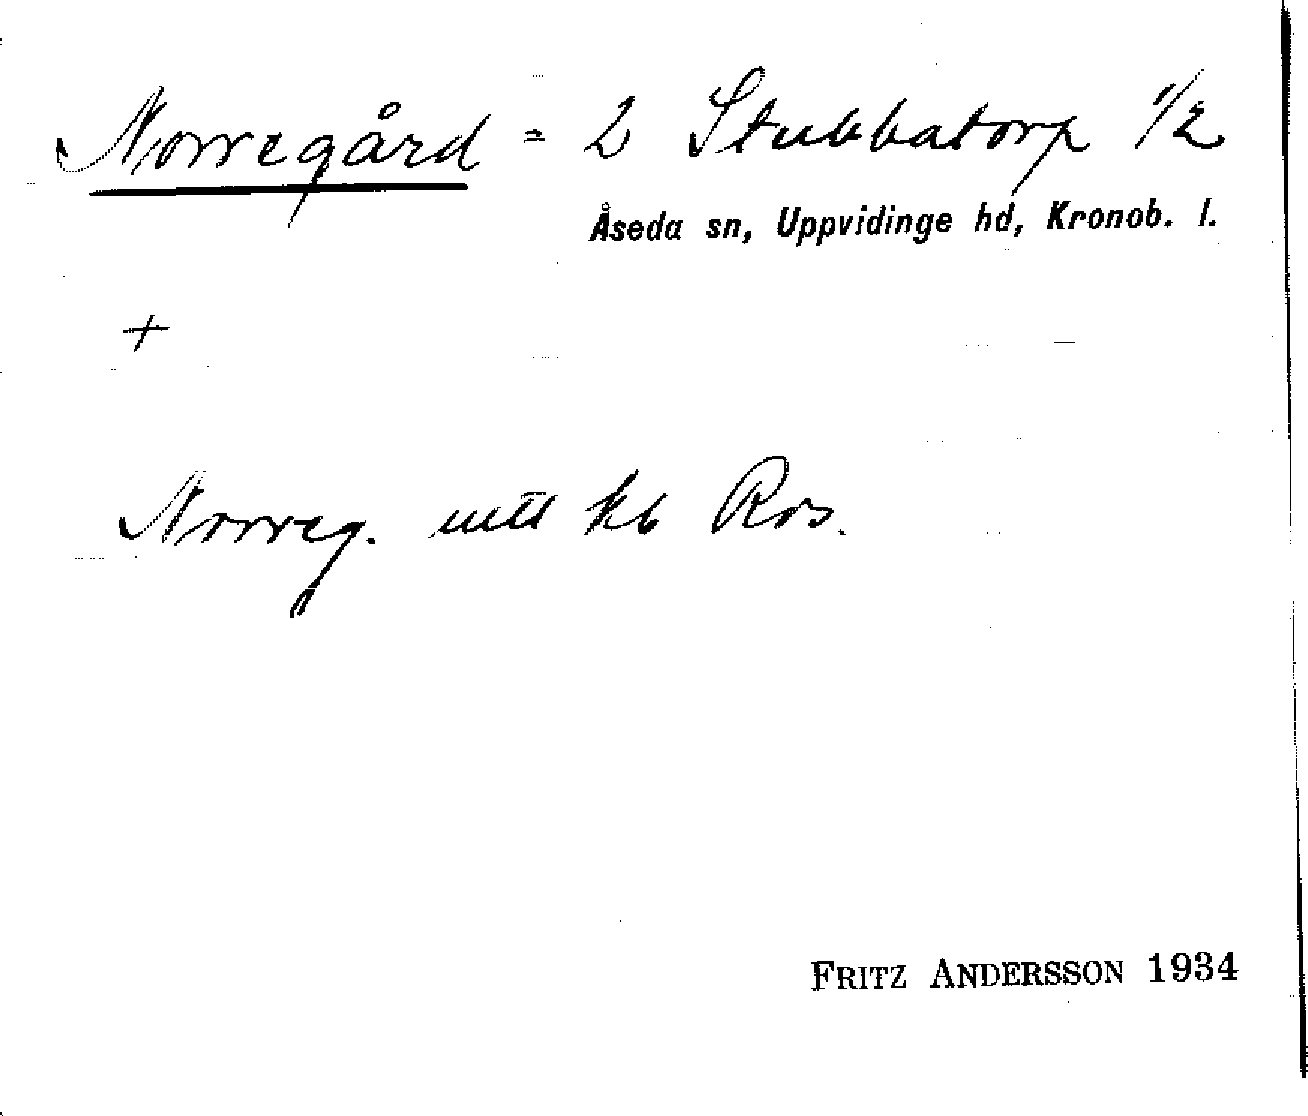 Norregård = 2 Stubbatorp 1/2
Åseda sn, Uppvidinge hd, Kronob. l.
+
Norreg. utt kb Ros.
FRITZ ANDERSSON 1934